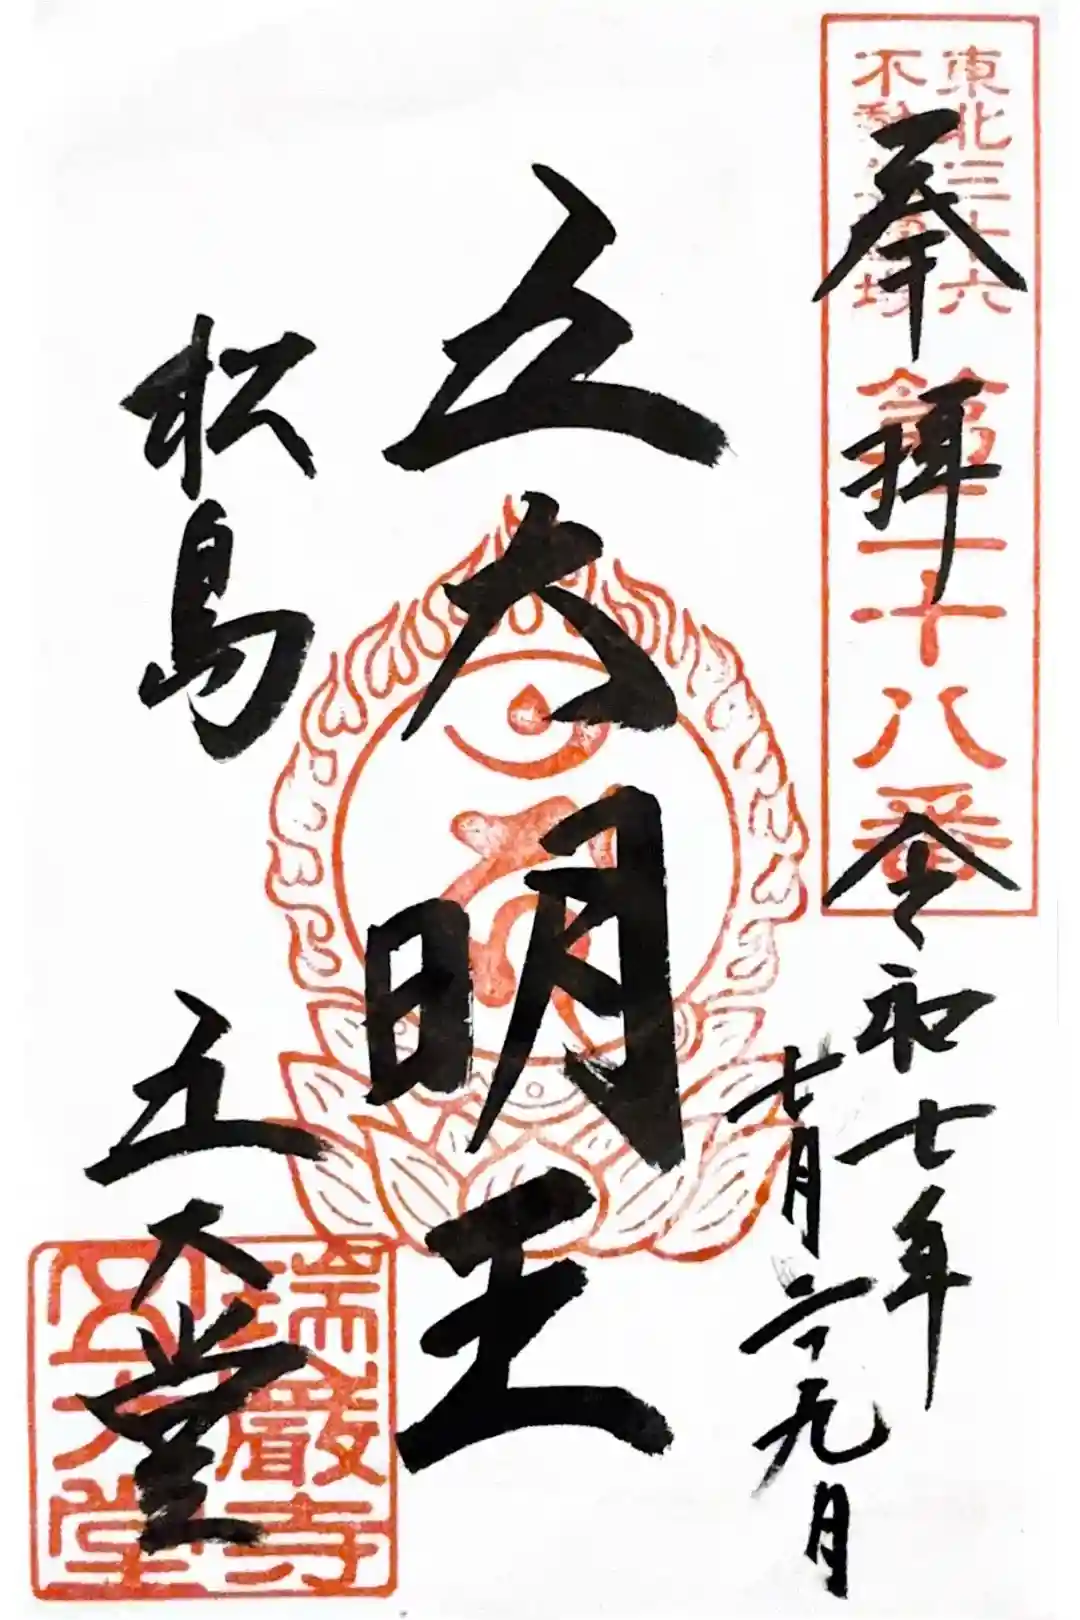 東北三十六
不動尊霊場
第二十八番
奉拝
令和七年
七月二十九日
五大明王
松島
五大堂
瑞巖寺
五大堂